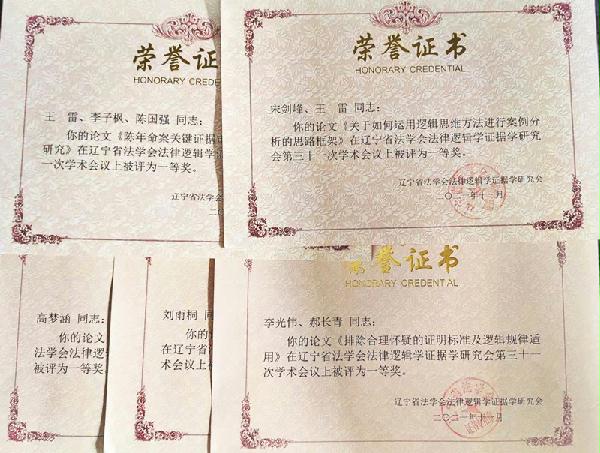 荣誉证书
HONORARY CREDE
王 雷、李子枫、陈国强 同志：
你的论文《陈年命案关键证据
研究》在辽宁省法学会法律逻辑学
一次学术会议上被评为一等奖。
辽宁省法学会
二〇
荣誉证书
HONORARY CREDENTIAL
宋剑峰、王 雷 同志：
你的论文《关于如何运用逻辑思维方法进行案例分
析的思路框架》在辽宁省法学会法律逻辑学证据学研究
会第三十一次学术会议上被评为一等奖。
辽宁省法学会法律逻辑学证据学研究会
二〇二一年十一月
高梦涵 同志：
你的论文
法学会法律逻
被评为一等奖
刘雨桐 同志：
你的论
在辽宁省法
术会议上被
荣誉证书
HONORARY CREDENTIAL
李光伟、郝长青 同志：
你的论文《排除合理怀疑的证明标准及逻辑规律适
用》在辽宁省法学会法律逻辑学证据学研究会第三十一
次学术会议上被评为一等奖。
辽宁省法学会法律逻辑学证据学研究会
二〇二一年十一月